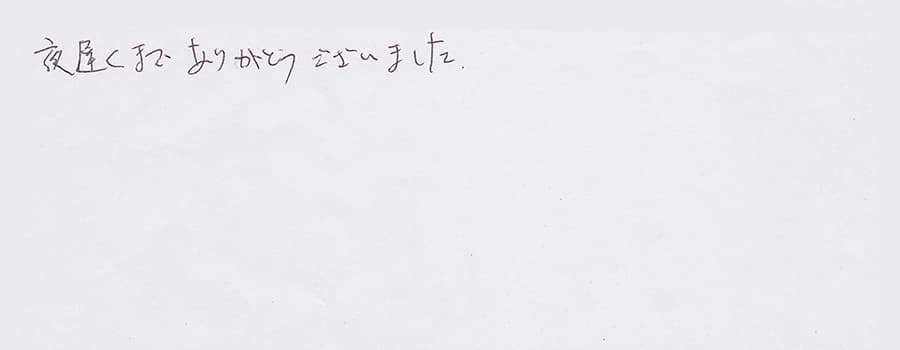 夜遅くまでありがとうございました.